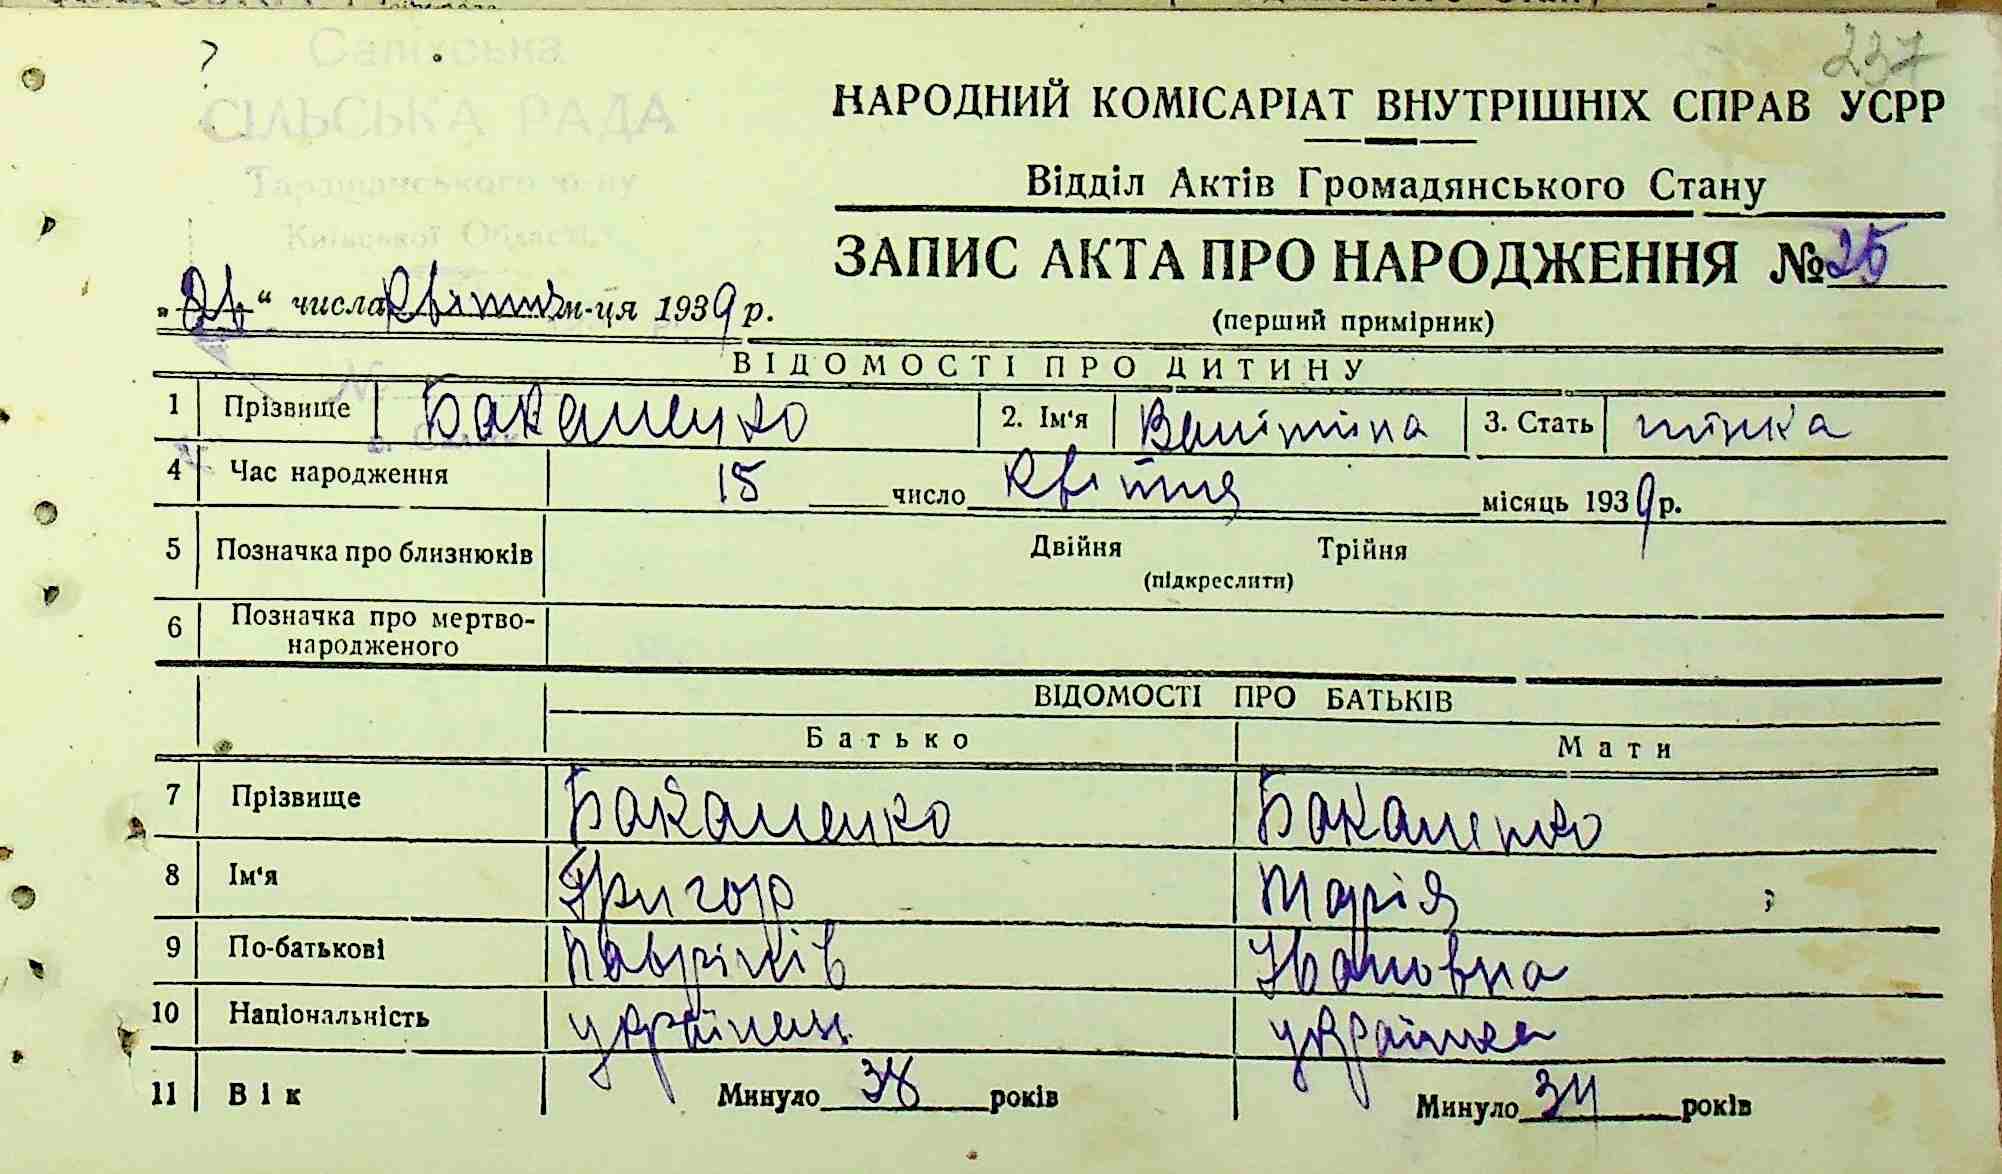 237
Саліхська
СІЛЬСЬКА РАДА
Таращанського р-ну
Київської Області
НАРОДНИЙ КОМІСАРІАТ ВНУТРІШНІХ СПРАВ УСРР
Відділ Актів Громадянського Стану
ЗАПИС АКТА ПРО НАРОДЖЕННЯ № 25
(перший примірник)
" числа квітня м-ця 1939 р.
ВІДОМОСТІ ПРО ДИТИНУ
1 Прізвище Бакаленко 2. Ім'я Валітина 3. Стать жінка
4 Час народження 15 число квітня місяць 1939 р.
5 Позначка про близнюків Двійня Трійня
(підкреслити)
6 Позначка про мертво-
народженого
ВІДОМОСТІ ПРО БАТЬКІВ
Батько Мати
7 Прізвище Бакаленко Бакаленко
8 Ім'я Григор Марія
9 По-батькові Івановна
10 Національність українец українка
11 Вік Минуло 38 років Минуло 34 років